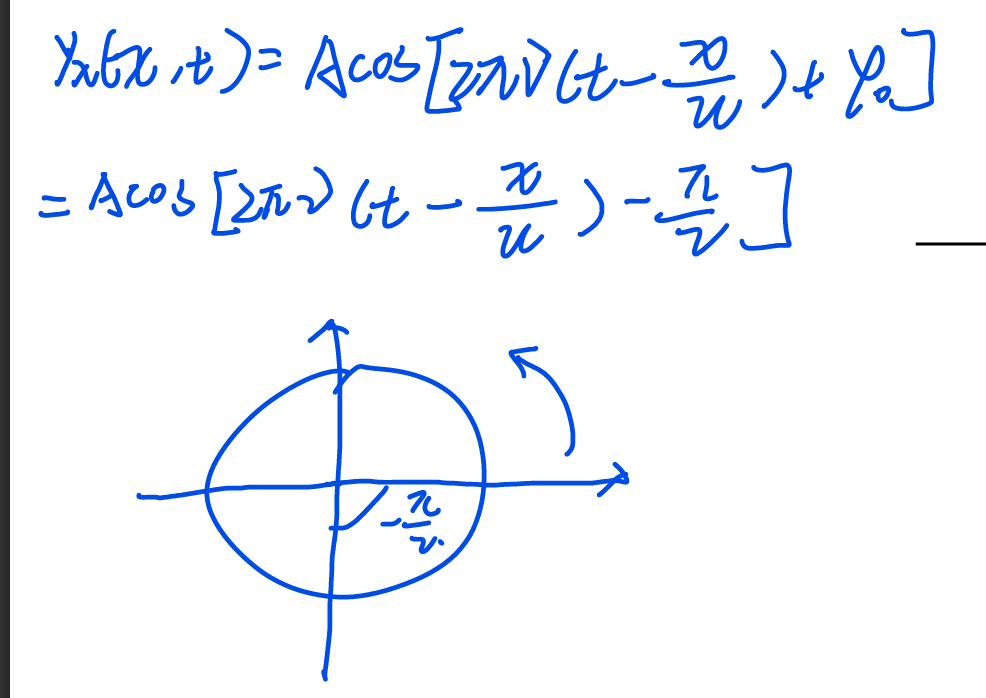 y_x(x,t) = Acos[2πν(t - x/u) + φ₀]
= Acos[2πν(t - x/u) - π/2]
-π/2